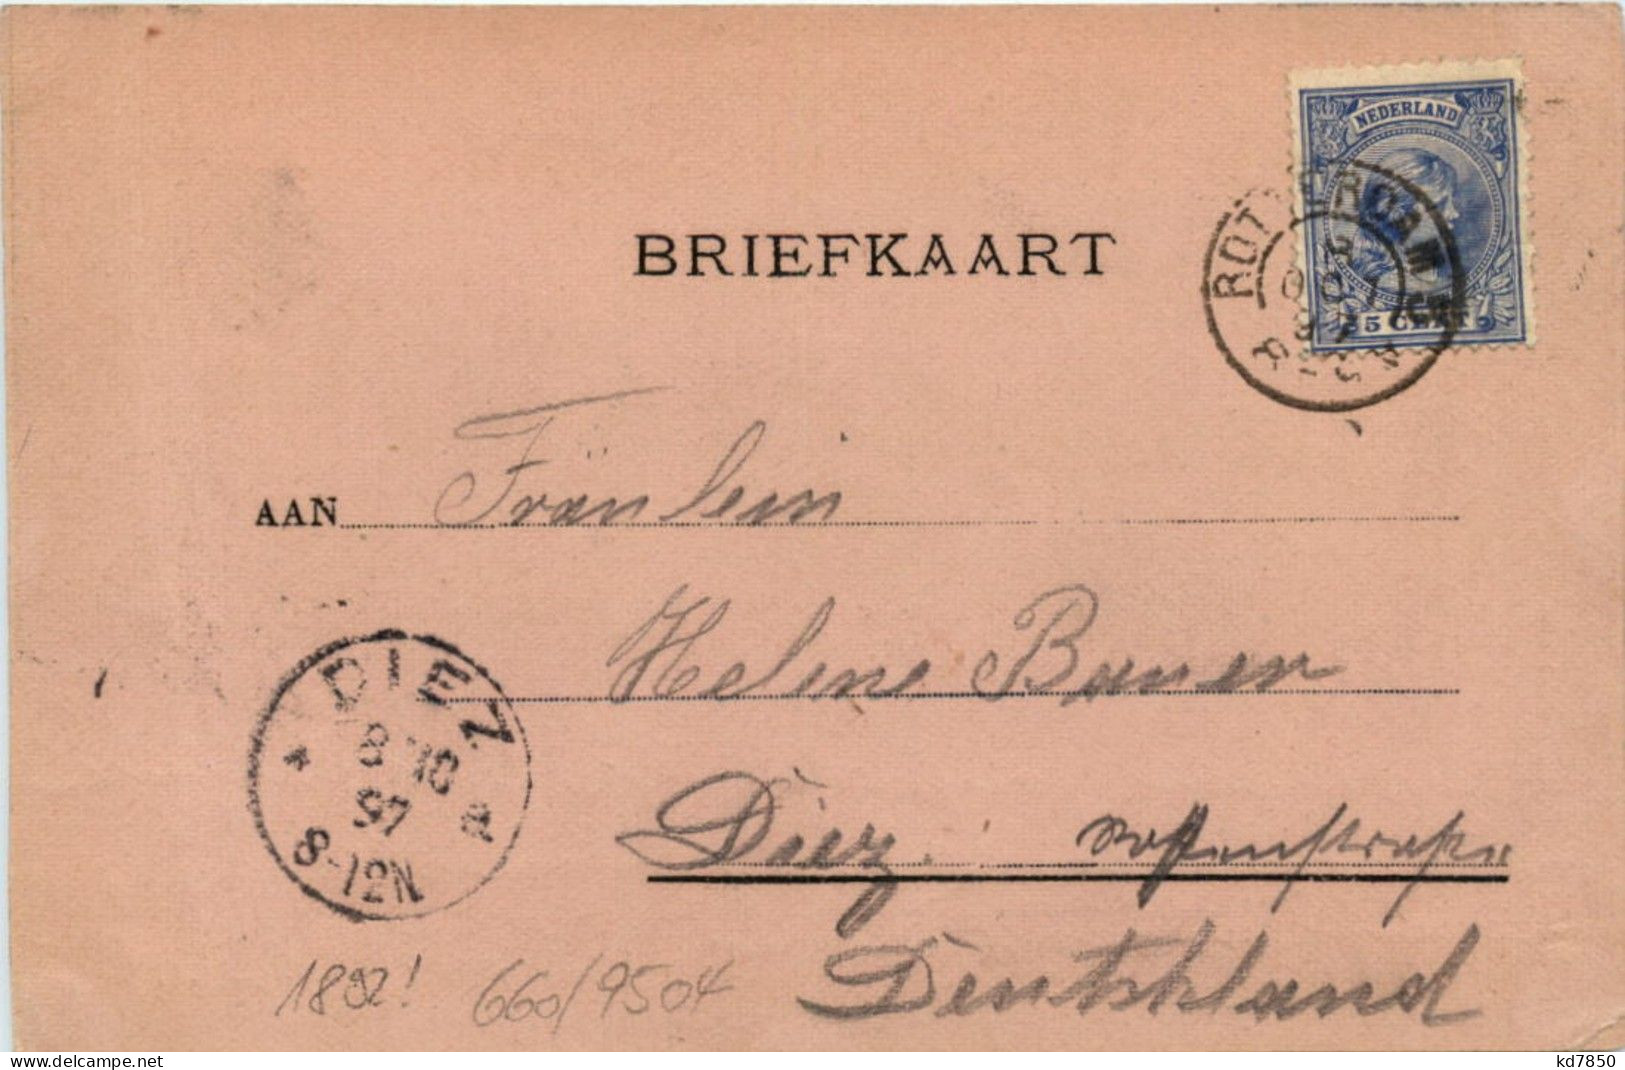 NEDERLAND
5 CENT
ROTTERDAM
BRIEFKAART
AAN Fräulein
Helene Bauer
Diez.
Deutschland
DIEZ
8 10
97
8-12N
1892! 660/9504
www.delcampe.net
kd7850